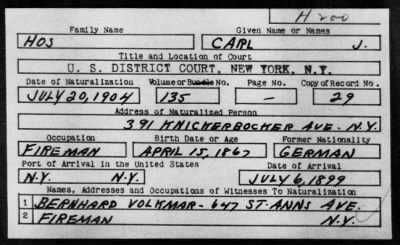 H 200
Family Name Given Name or Names
HOS CARL J.
Title and Location of Court
U. S. DISTRICT COURT, NEW YORK, N.Y.
Date of Naturalization Volume or Bundle No. Page No. Copy of Record No.
JULY 20, 1904 135 — 29
Address of Naturalized Person
391 KNICKERBOCKER AVE. N.Y.
Occupation Birth Date or Age Former Nationality
FIREMAN APRIL 15, 1867 GERMAN
Port of Arrival in the United States Date of Arrival
N.Y. N.Y. JULY 6, 1899
Names, Addresses and Occupations of Witnesses To Naturalization
1 BERNHARD VOLKMAR - 647 ST. ANNS AVE.
2 FIREMAN N.Y.